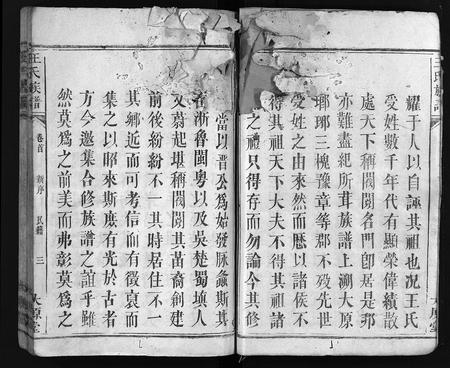 耀于人以自誣其祖也况王氏
受姓數千年代有顯榮偉績散
處天下稱閥閱名門卽居是邦
亦難盡紀所葺族譜上溯太原
瑯琊三槐豫章等郡不歿先世
受姓之由來然而厯以諸侯不
得其祖天子大夫不得其祖諸
之禮只得存而勿論今其修
當以晋公爲始發脉螽斯其
在浙魯閩粤以及吳楚蜀填人
又蔚起堪稱閥閱其苗裔創建
前後紛紛不一其時居住不一
其鄉近而可考信而有徵裒而
集之以昭來斯庶有光於古者
方今邀集合修族譜之誼乎雖
然莫爲之前美而弗彰莫爲之
王氏族譜
卷首
新序
民籍
三
太原堂
王氏族譜
太原堂